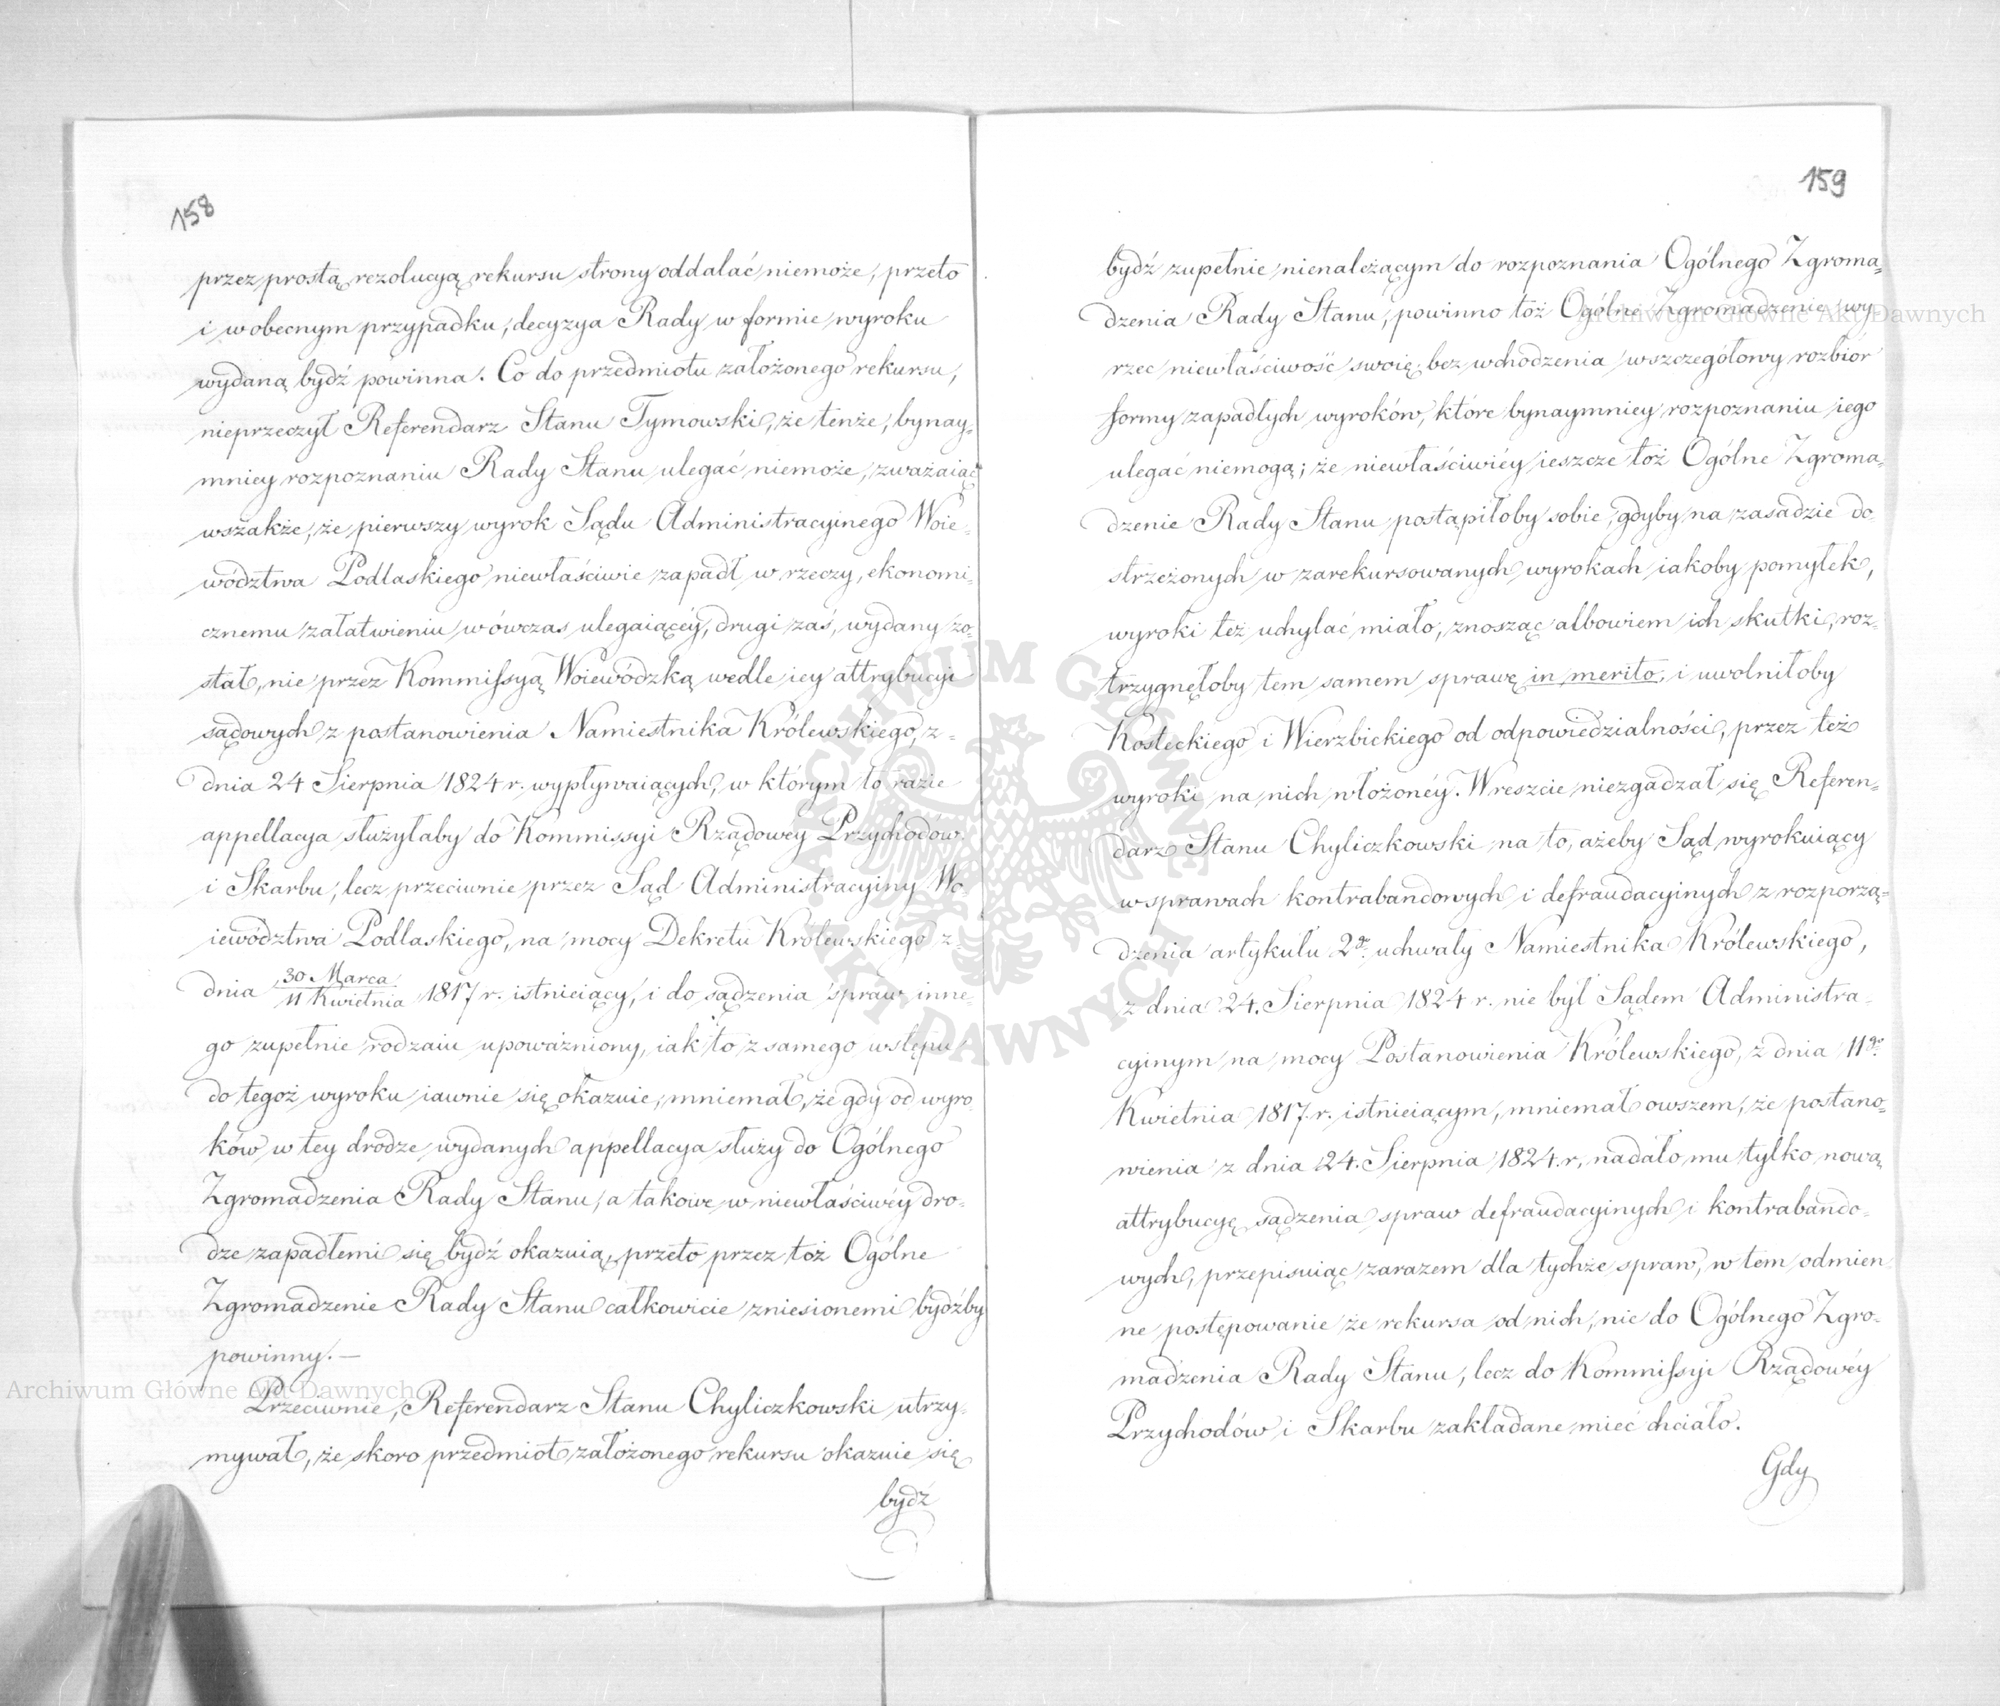 158
przez prostą rezolucyą rekursu strony oddalać niemoże, przeto
i w obecnym przypadku, decyzya Rady w formie wyroku
wydaną bydź powinna. Co do przedmiotu założonego rekursu,
nieprzeczył Referendarz Stanu Tymowski, że tenże, bynay-
mniey rozpoznaniu Rady Stanu ulegać niemoże, zważaiąc
wszakże, że pierwszy wyrok Sądu Administracyinego Woie-
wództwa Podlaskiego niewłaściwie zapadł w rzeczy, ekonomi-
cznemu załatwieniu wówczas ulegaiącéy, drugi zaś, wydany zo-
stał, nie przez Kommissyą Woiewódzką wedle iey attrybucyi
sądowych z postanowienia Namiestnika Królewskiego, z-
dnia 24 Sierpnia 1824 r. wypływaiących, w którym to razie
appellacya służyłaby do Kommissyi Rządowéy Przychodów
i Skarbu, lecz przeciwnie przez Sąd Administracyiny Wo-
iewództwa Podlaskiego, na mocy Dekretu Królewskiego z-
dnia 30 Marca/11 Kwietnia 1817 r. istnieiący, i do sądzenia spraw inne-
go zupełnie rodzaiu upoważniony, iak to z samego wstępu
do tegoż wyroku iawnie się okazuie, mniemał, że gdy od wyro
ków w tey drodze wydanych appellacya służy do Ogólnego
Zgromadzenia Rady Stanu, a takowe w niewłaściwéy dro-
dze zapadłemi się bydź okazuią, przeto przez toż Ogólne
Zgromadzenie Rady Stanu całkowicie zniesionemi bydźby
powinny. —
Przeciwnie, Referendarz Stanu Chyliczkowski utrzy-
mywał, że skoro przedmiot założonego rekursu okazuie się
bydź
159
bydź zupełnie nienależącym do rozpoznania Ogólnego Zgroma-
dzenia Rady Stanu, powinno toż Ogólne Zgromadzenie wy-
rzec niewłaściwość swoię, bez wchodzenia w szczegółowy rozbiór
formy zapadłych wyroków, które bynaymniey rozpoznaniu iego
ulegać niemogą; że niewłaściwiéy ieszcze toż Ogólne Zgroma-
dzenie Rady Stanu postąpiłoby sobie, gdyby na zasadzie do-
strzeżonych w zarekursowanych wyrokach iakoby pomyłek,
wyroki też uchylać miało, znosząc albowiem ich skutki, roz-
trzygnęłoby tem samem sprawę in merito, i uwolniłoby
Kosteckiego i Wierzbickiego od odpowiedzialności, przez też
wyroki na nich włożonéy. Wreszcie niezgadzał się Referen-
darz Stanu Chyliczkowski na to, ażeby Sąd wyrokuiący
w sprawach kontrabandowych i defraudacyinych z rozporzą-
dzenia artykułu 2go uchwały Namiestnika Królewskiego,
z dnia 24. Sierpnia 1824 r. nie był Sądem Administra-
cyinym na mocy Postanowienia Królewskiego, z dnia 11go
Kwietnia 1817. r. istnieiącym, mniemał owszem, że postano-
wienia z dnia 24. Sierpnia 1824. r. nadało mu tylko nową
attrybucyę sądzenia spraw defraudacyinych i kontrabando-
wych, przepisuiąc zarazem dla tychże spraw, w tem odmien
ne postępowanie że rekursa od nich, nie do Ogólnego Zgro-
madzenia Rady Stanu, lecz do Kommissyi Rządowéy
Przychodów i Skarbu zakładane mieć chciało.
Gdy
Archiwum Główne Akt Dawnych
Archiwum Główne Akt Dawnych
ARCHIWUM GŁÓWNE AKT DAWNYCH